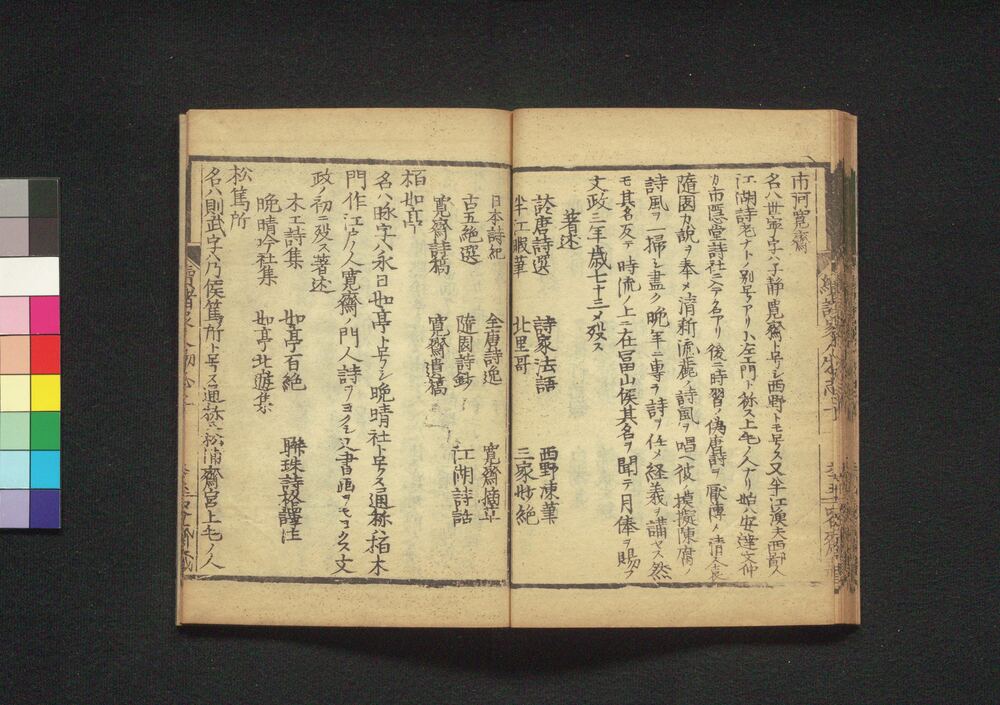 市河寛齋
名ハ世寧字ハ子静寛齋ト号シ西野トモ号ス又半江漁夫西鄙人
江湖詩老ナトノ別号アリ小左エ門ト称ス上毛ノ人ナリ始ハ安達文仲
カ市隠堂詩社ニ入名アリ後ニ時習ノ偽唐詩ヲ厭陳メ清ノ袁
隨園カ説ヲ奉メ清新流麗ノ詩風ヲ唱ヘ彼模擬陳腐ノ
詩風ヲ一掃シ盡ク晩年ニ専ラ詩ヲ仕メ経義ヲ講セス然
モ其名友テ時流ノ上ニ在冨山侯其名ヲ聞テ月俸ヲ賜フ
文政三年歳七十三メ殁ス
著述
談唐詩選 詩家法語 西野凍菓
半江暇筆 北里哥 三家妙絶
日本詩紀 全唐詩逸 寛齋摘草
古五絶選 隨園詩鈔 江湖詩話
寛齋詩稿 寛齋遺稿
栢如亭
名ハ昹字ハ永日如亭ト号シ晩晴社ト号ス通称ハ栢木
門作江戸ノ人寛齋ノ門人詩ヲヨクシ又書画ヲモヨクス文
政ノ初ニ殁ス著述
木工詩集 如亭百絶 聯珠詩格譯注
晩晴吟社集 如亭北遊集
松篤所
名ハ則武字ハ乃侯篤所ト号ス通称ハ松浦齋宮上毛ノ人